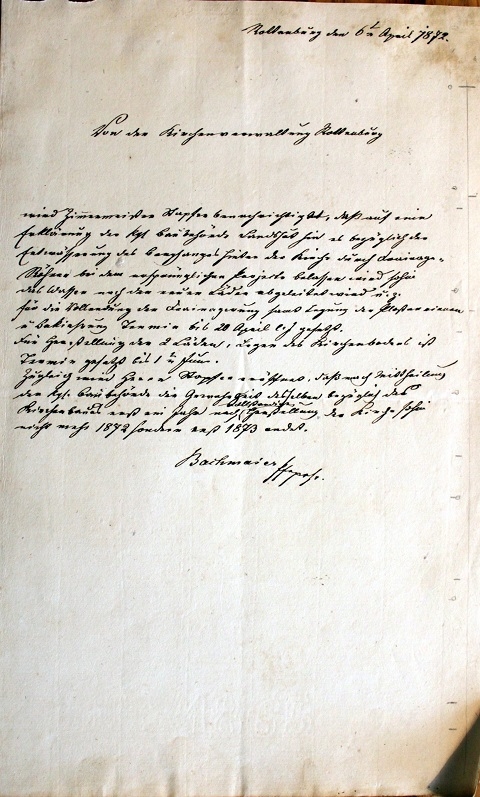 Rottenburg den 6t. April 1872.
Von der Kirchenverwaltung Rottenburg
wird Zimmermeister Stapfer benachrichtigt, daß auf eine
Erklärung der kgl. Baubehörde Landshut hin es bezüglich der
Entwässerung des Berghanges hinter der Kirche durch Drainage-
Röhren bei dem ursprünglichen Projekte belassen wird, sohin
das Wasser nach der neuen abgeleitet wird u. z.
für die Vollendung der Drainagirung samt Legung der Pflasterrinnen
u. Termin bis 28 April l. J. gesetzt.
Zur Herstellung der 2 Böden des Kirchenbodens ist
Termin gesetzt bis 1t. Juni.
Zugleich wird Herrn Stapfer eröffnet, daß nach Mittheilung
der kgl. Baubehörde die desselben bezüglich des
Kirchenbaues erst ein Jahr nach vollständiger Herstellung der Kirche, sohin
nicht mehr 1872 sondern erst 1873 endet.
Bachmaier